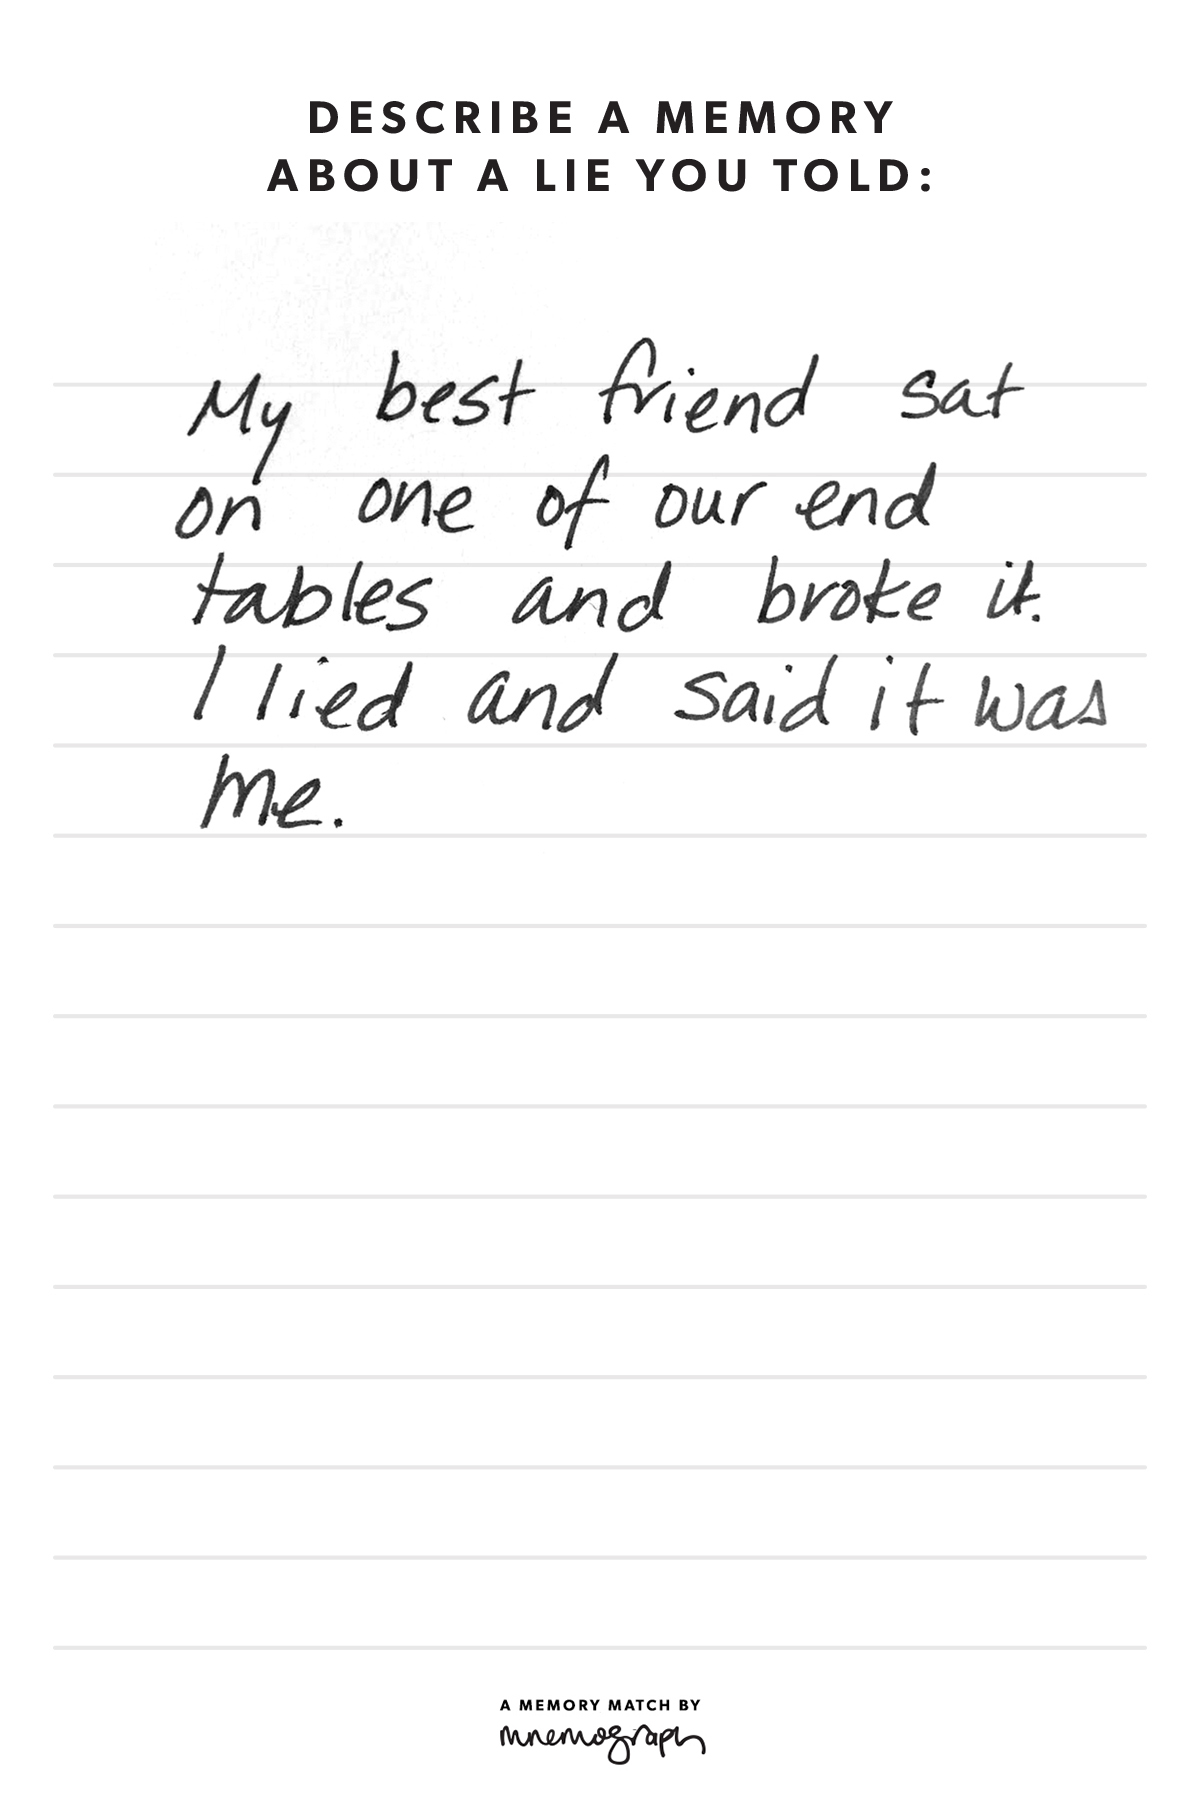 DESCRIBE A MEMORY
ABOUT A LIE YOU TOLD:
My best friend sat
on one of our end
tables and broke it.
I lied and said it was
me.
A MEMORY MATCH BY
mnemograph